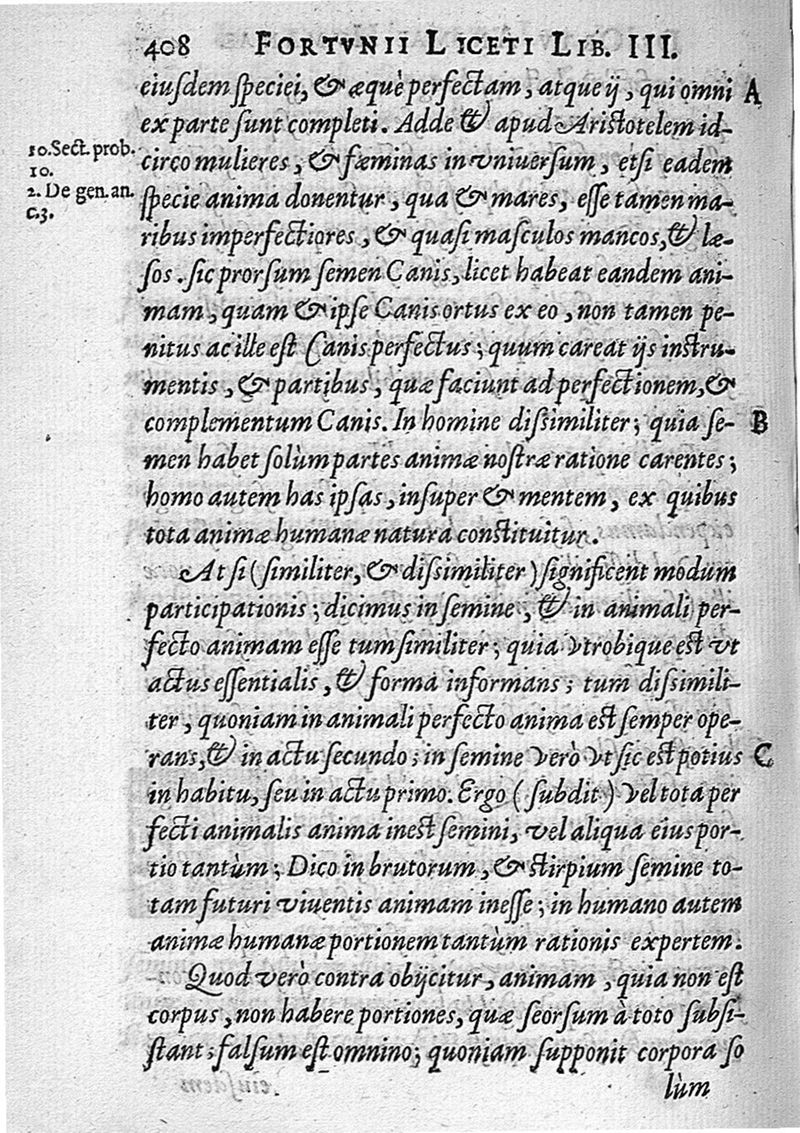 408 FORTVNII LICETI LIB. III.
eiusdem speciei, & æquè perfectam, atque ij, qui omni A
ex parte sunt completi. Adde & apud Aristotelem id-
10. Sect. prob. circo mulieres, & fæminas in vniuersum, etsi eadem
10.
2. De gen. an. specie anima donentur, qua & mares, esse tamen ma-
c.3.
ribus imperfectiores, & quasi masculos mancos, & læ-
sos. sic prorsum semen Canis, licet habeat eandem ani-
mam, quam & ipse Canis ortus ex eo, non tamen pe-
nitus ac ille est Canis perfectus; quum careat ijs instru-
mentis, & partibus, quæ faciunt ad perfectionem, &
complementum Canis. In homine dissimiliter; quia se- B
men habet solùm partes animæ nostræ ratione carentes;
homo autem has ipsas, insuper & mentem, ex quibus
tota animæ humanæ natura constituitur.
At si (similiter, & dissimiliter) significent modum
participationis; dicimus in semine, & in animali per-
fecto animam esse tum similiter; quia vtrobique est vt
actus essentialis, & forma informans; tum dissimili-
ter, quoniam in animali perfecto anima est semper ope-
rans, & in actu secundo; in semine verò vt sic est potius C
in habitu, seu in actu primo. Ergo (subdit) vel tota per
fecti animalis anima inest semini, vel aliqua eius por-
tio tantùm; Dico in brutorum, & stirpium semine to-
tam futuri viuentis animam inesse; in humano autem
animæ humanæ portionem tantùm rationis expertem.
Quod verò contra obijcitur, animam, quia non est
corpus, non habere portiones, quæ seorsum à toto subsi-
stant; falsum est omnino; quoniam supponit corpora so
lùm